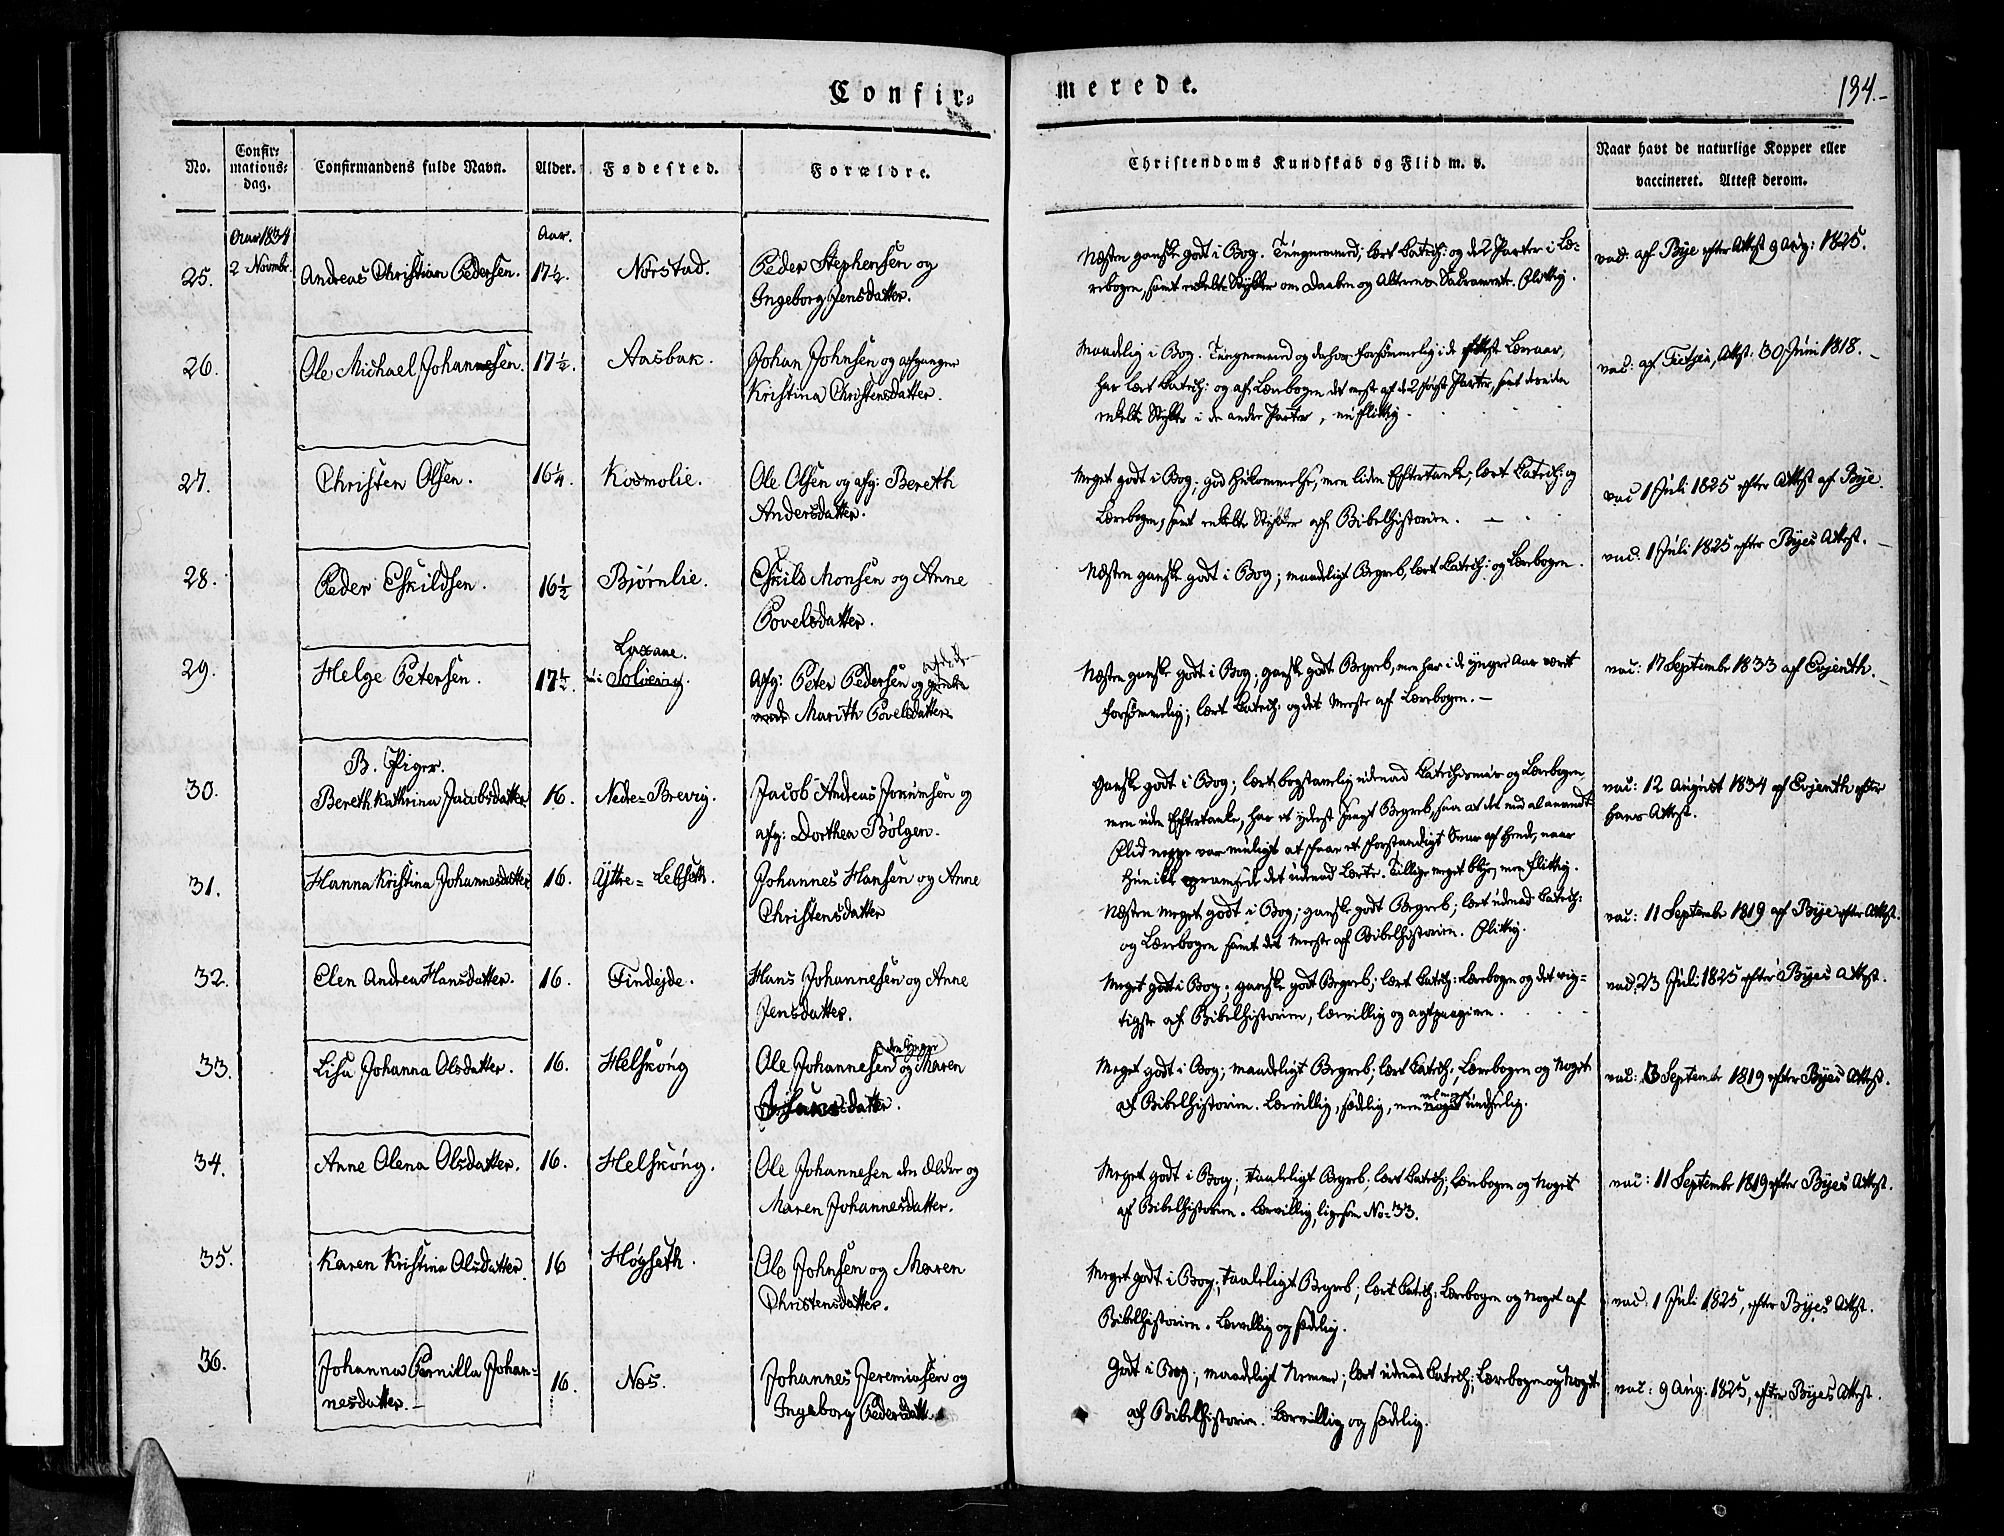 Confir-
merede.
134.-
No.
Confir-
mations-
dag.
Confirmandens fulde Navn.
Alder.
Fødested.
Forældre.
Christendoms Kundskab og Flid m. v.
Naar havt de naturlige Kopper eller
vaccineret. Attest derom.
Aar 1834
Aar.
25.
2 Novmbr.
Andreas Christian Pedersen.
17½.
Nørstad.
Peder Stephensen og
Ingeborg Jensdatter.
Næsten ganske godt i Bog. Tungnemmed; lært Catech: og de 2 Parter i Læ-
rebogen, samt enkelte Stykker om Daaben og Alterens Sakramente. Flittig.
vac: af Bye efter Attest 9 Aug: 1825.
26.
Ole Michael Johannesen.
17½.
Aasbak.
Johan Johnsen og afgangne
Kristina Christensdatter.
Maadelig i Bog. Tungnemmed og forsømmelig i de Læreaar,
har lært Catech: og af Lærebogen det meste af de 2 første Parter, samt desuden
enkelte Stykker i de andre Parter, nu flittig.
vac: af Attest. 30 Juni 1818.
27.
Christen Olsen.
16¼.
Kosmolie.
Ole Olsen og afg: Bereth
Andersdatter.
Meget godt i Bog; god Hukommelse, men liden Eftertanke; lært Catech: og
Lærebogen, samt enkelte Stykker af Bibelhistorien.
vac 1 Juli 1825 efter Attest af Bye.
28.
Peder Eskildsen.
16½
Bjørnlie.
Eskild Monsen og Anne
Povelsdatter.
Næsten ganske godt i Bog; maadeligt Begreb, lært Catech: og Lærebogen.
vac. 1 Juli 1825 efter Byes Attest.
29.
Helge Petersen.
17½.
Laxaae.
Afg: Peter Pedersen og
Marith Povelsdatter
Næsten ganske godt i Bog; ganske godt Begreb, men har i de yngre Aar været
forsømmelig; lært Catech: og det meste af Lærebogen.-
vac: 17 September 1833 af Evjenth.
B. Piger.
30.
Bereth Kathrina Jacobsdatter
16.
Nedre-Brevig.
Jacob Andreas Joachimsen og
afg: Dorthea Bølgen.
Ganske godt i Bog; lært bogstavelig udenad Catechismus og Lærebogen
men uden Eftertanke, har et yderst svagt Begreb, saa at det med al anvendt
Flid neppe var muligt at faae et forstandigt Svar af hende, naar
hun ikke opramsede det udenad Lærte. Tillige meget blye, men flittig.
vac: 12 August 1834 af Evjenth efter
hans Attest.
31.
Hanna Kristina Johannesdatter
16.
Yttre-Lebseth.
Johannes Hansen og Anne
Christensdatter
Næsten meget godt i Bog; ganske godt Begreb; lært udenad Catech:
og Lærebogen samt det meeste af Bibelhistorien. Flittig.
vac: 11 September 1819 af Bye efter Attest.
32.
Elen Andrea Hansdatter.
16.
Findejde.
Hans Johannesen og Anne
Jensdatter.
Meget godt i Bog; ganske godt Begreb; lært Catech: Lærebogen og det vig-
tigste af Bibelhistorien, lærvillig og agtpaagiven.
vac. 23 Juli 1825 efter Byes Attest.
33.
Lisa Johanna Olsdatter.
16.
Helskóng
den Yngre
Ole Johannesen og Maren
Meget godt i Bog; maadeligt Begreb; lært Catech:, Lærebogen og Noget
af Bibelhistorien. Lærvillig, sædelig, men undseelig.
vac: 13 September 1819 efter Byes Attest.
34.
Anne Olena Olsdatter.
16.
Helskóng.
Ole Johannesen den Ældre og
Maren Johannesdatter.
Meget godt i Bog; taaleligt Begreb; lært Catech:, Lærebogen og Noget
af Bibelhistorien. Lærvillig, ligesom No 33.
vac: 11 September 1819 efter Byes Attest.
35.
Karen Kristina Olsdatter
16
Høgseth.
Ole Johnsen og Maren
Christensdatter.
Meget godt i Bog; taaleligt Begreb; lært Catech: Lærebogen og Noget af
Bibelhistorien. Lærvillig og sædelig.
vac: 1 Juli 1825, efter Byes Attest.
36.
Johanna Pernilla Johan-
nesdatter.-
16.
Næs.
Johannes Jeremiasen og
Ingeborg Pedersdatter
Godt i Bog; maadeligt Nemme; lært udenad Catech:, Lærebogen og Noget
af Bibelhistorien. Lærvillig og sædelig.
vac: 9 Aug: 1825, efter Byes Attest.